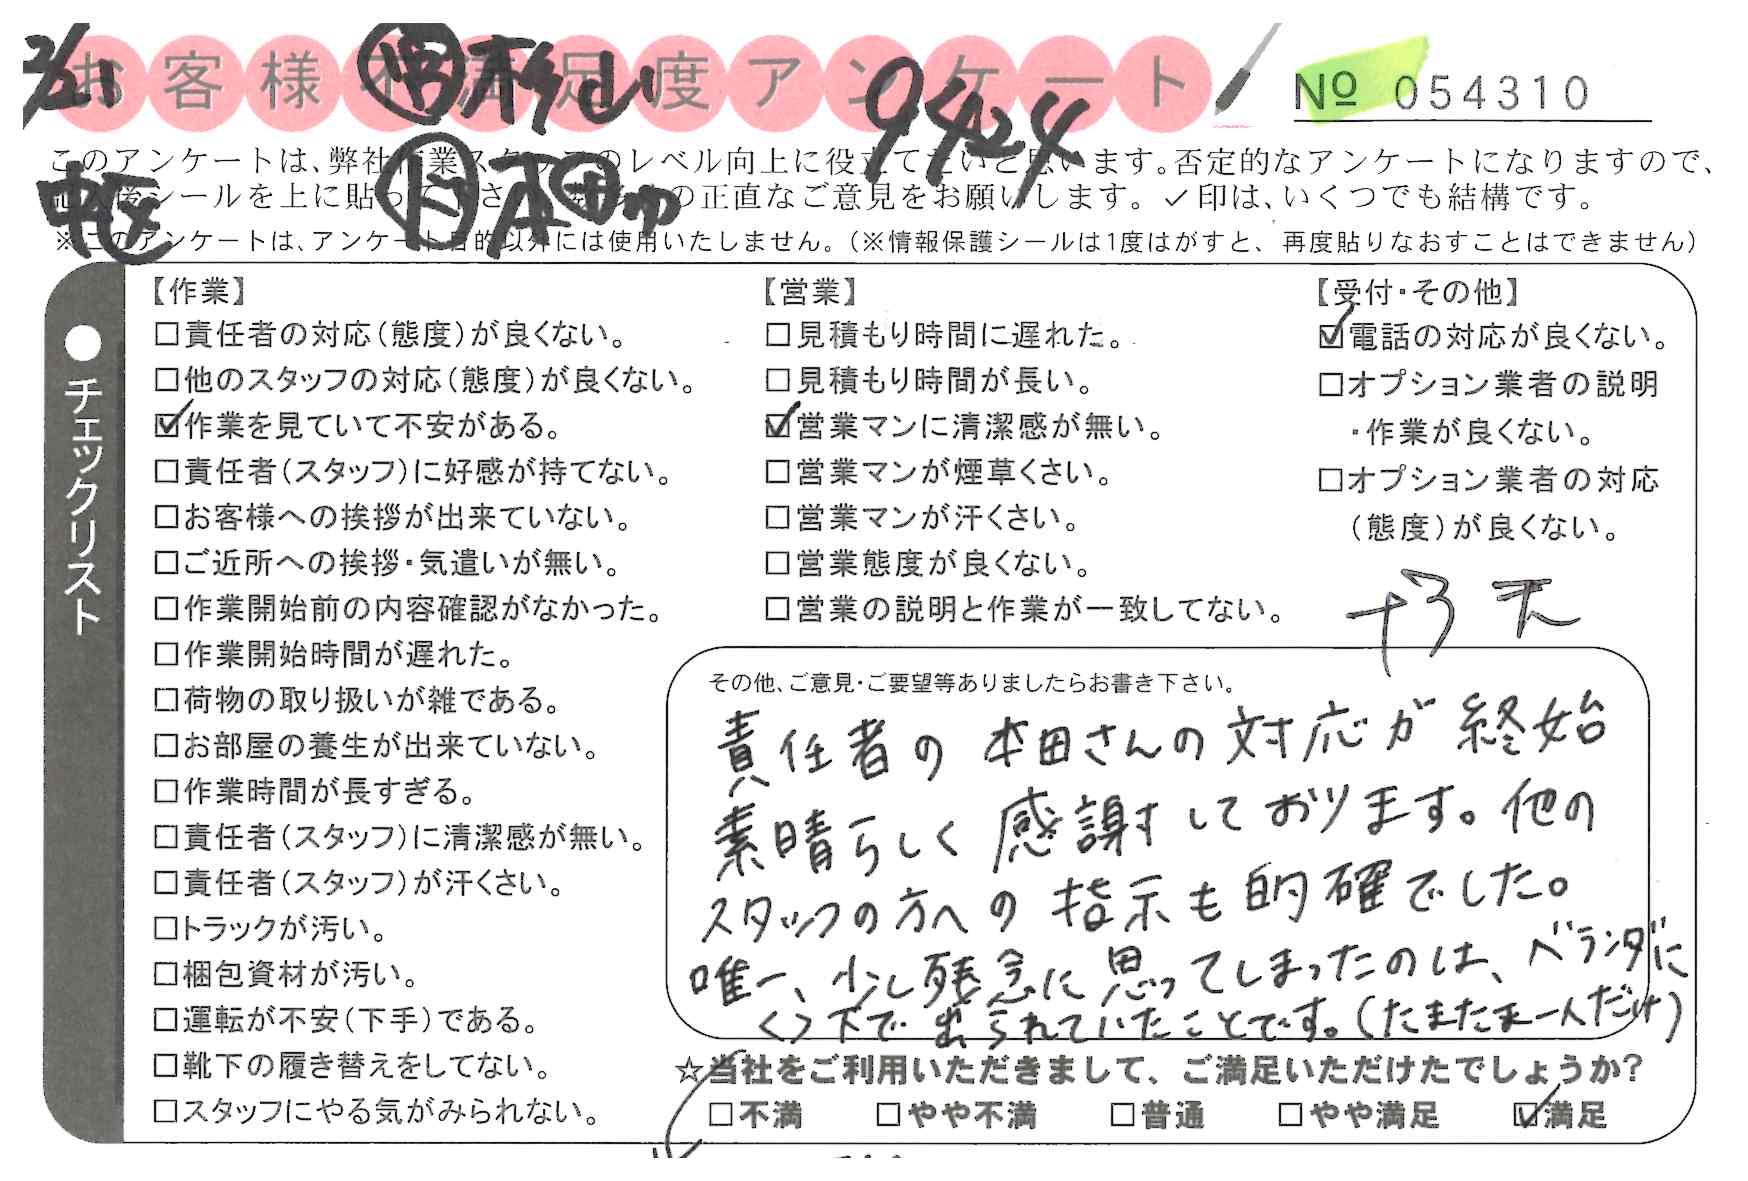 2/21
お客様不満足度アンケート
9424
№ 054310
このアンケートは、弊社作業スタッフのレベル向上に役立てたいと思います。否定的なアンケートになりますので、
シールを上に貼って下さい。の正直なご意見をお願いします。✓印は、いくつでも結構です。
中区
本田
※このアンケートは、アンケート目的以外には使用いたしません。（※情報保護シールは1度はがすと、再度貼りなおすことはできません）
●チェックリスト
【作業】
□責任者の対応（態度）が良くない。
□他のスタッフの対応（態度）が良くない。
☑作業を見ていて不安がある。
□責任者（スタッフ）に好感が持てない。
□お客様への挨拶が出来ていない。
□ご近所への挨拶・気遣いが無い。
□作業開始前の内容確認がなかった。
□作業開始時間が遅れた。
□荷物の取り扱いが雑である。
□お部屋の養生が出来ていない。
□作業時間が長すぎる。
□責任者（スタッフ）に清潔感が無い。
□責任者（スタッフ）が汗くさい。
□トラックが汚い。
□梱包資材が汚い。
□運転が不安（下手）である。
□靴下の履き替えをしてない。
□スタッフにやる気がみられない。
【営業】
□見積もり時間に遅れた。
□見積もり時間が長い。
☑営業マンに清潔感が無い。
□営業マンが煙草くさい。
□営業マンが汗くさい。
□営業態度が良くない。
□営業の説明と作業が一致してない。
【受付・その他】
☑電話の対応が良くない。
□オプション業者の説明
・作業が良くない。
□オプション業者の対応
（態度）が良くない。
その他、ご意見・ご要望等ありましたらお書き下さい。
責任者の本田さんの対応が終始
素晴らしく感謝しております。他の
スタッフの方への指示も的確でした。
唯一、少し残念に思ってしまったのは、ベランダに
くつ下で出られていたことです。（たまたま一人だけ）
☆当社をご利用いただきまして、ご満足いただけたでしょうか？
□不満 □やや不満 □普通 □やや満足 ☑満足